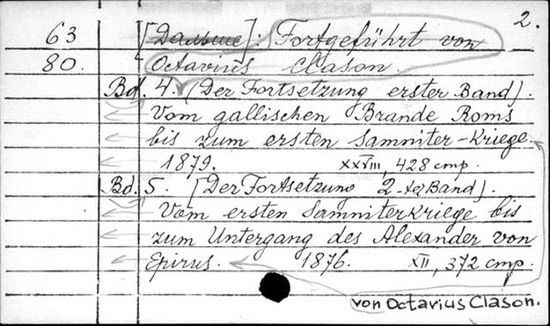 2.
63 [Dasselbe]: Fortgeführt von
80. Octavius Clason.
Bd. 4. (Der Fortsetzung erster Band).
Vom gallischen Brande Roms
bis zum ersten Samniter-Kriege.
1879. XXVIII, 428 cmp.
Bd. 5. (Der Fortsetzung 2-ter Band).
Vom ersten Samniterkriege bis
zum Untergang des Alexander von
Epirus. 1876. XII, 372 cmp.
von Octavius Clason.